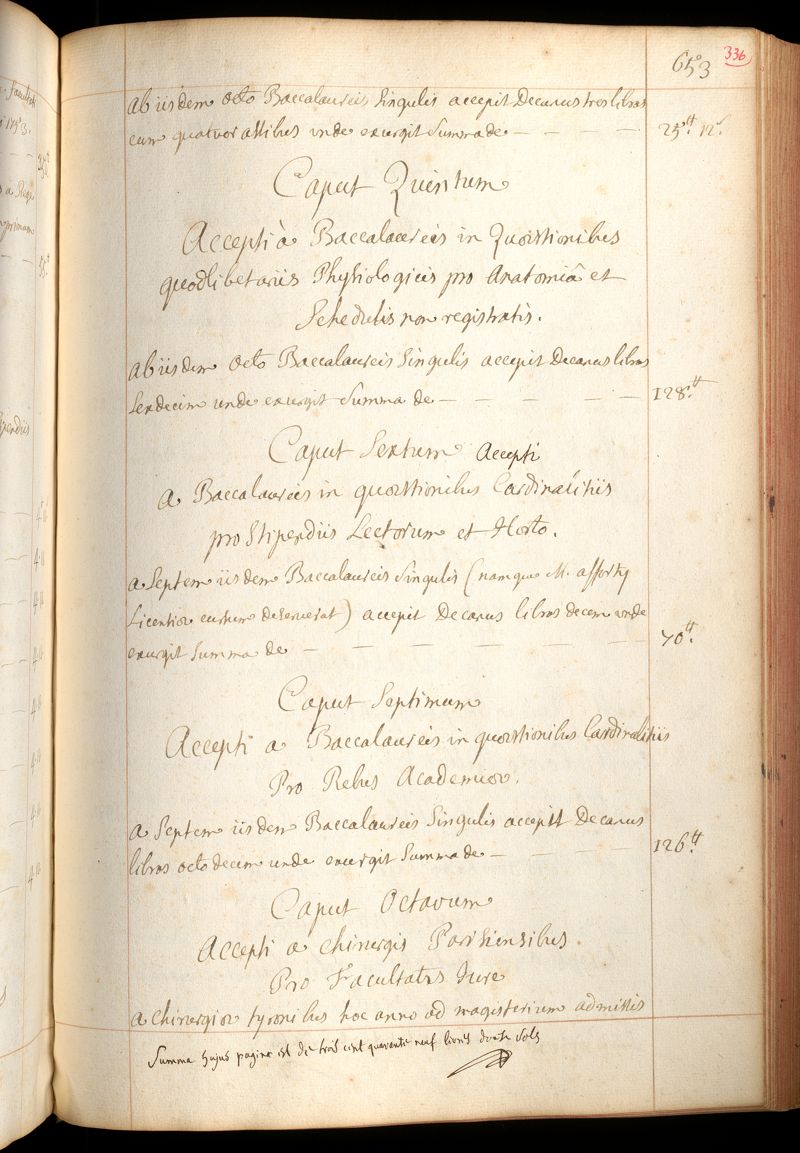 336
653
ab iisdem octo Baccalaureis singulis accepit Decanus tres libras
cum quatuor assibus unde exurgit summa de — — — — 25.tt 12.s
Caput Quintum
Accepti à Baccalaureis in Quæstionibus
quodlibetariis Physiologicis pro Anatomiâ et
Schedulis non registratis.
ab iisdem octo Baccalaureis singulis accepit Decanus libras
sexdecim unde exurgit summa de — — — — — 128.tt
Caput Sextum Accepti
a Baccalaureis in quæstionibus Cardinalitiis
pro Stipendiis Lectorum et Horto.
a Septem iisdem Baccalaureis singulis (namque M.
Licentiæ cursum deseruerat) accepit Decanus libras decem unde
exurgit summa de — — — — — — 70.tt
Caput Septimum
Accepti a Baccalaureis in quæstionibus Cardinalitiis
Pro Rebus Academicæ.
a Septem iisdem Baccalaureis singulis accepit Decanus
libras octodecim unde exurgit summa de — — — — 126.tt
Caput Octavum
Accepti a chirurgis Parisiensibus
Pro Facultatis Jure
a chirurgiæ tyronibus hoc anno ad magisterium admissis
Summa hujus paginæ est de trois cent quarante neuf livres douze sols